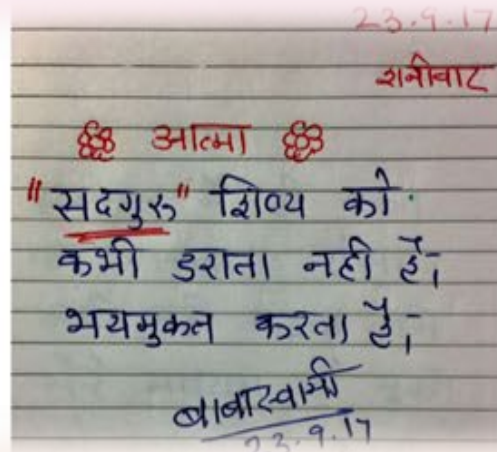 23.9.17
शनीवार
आत्मा
"सदगुरु" शिष्य को
कभी डराता नही है।
भयमुक्त करता है।
बाबास्वामी
23.9.17